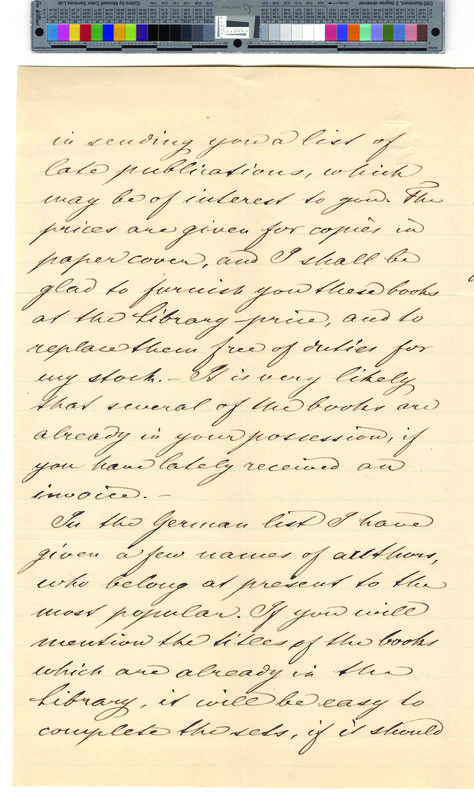 in sending you a list of
late publications, which
may be of interest to you. The
prices are given for copies in
paper cover, and I shall be
glad to furnish you these books
at the Library-price, and to
replace them free of duties for
my stock. — It is very likely
that several of the books are
already in your possession, if
you have lately received an
invoice. —
In the German list I have
given a few names of authors,
who belong at present to the
most popular. If you will
mention the titles of the books
which are already in the
Library, it will be easy to
complete the sets, if it should